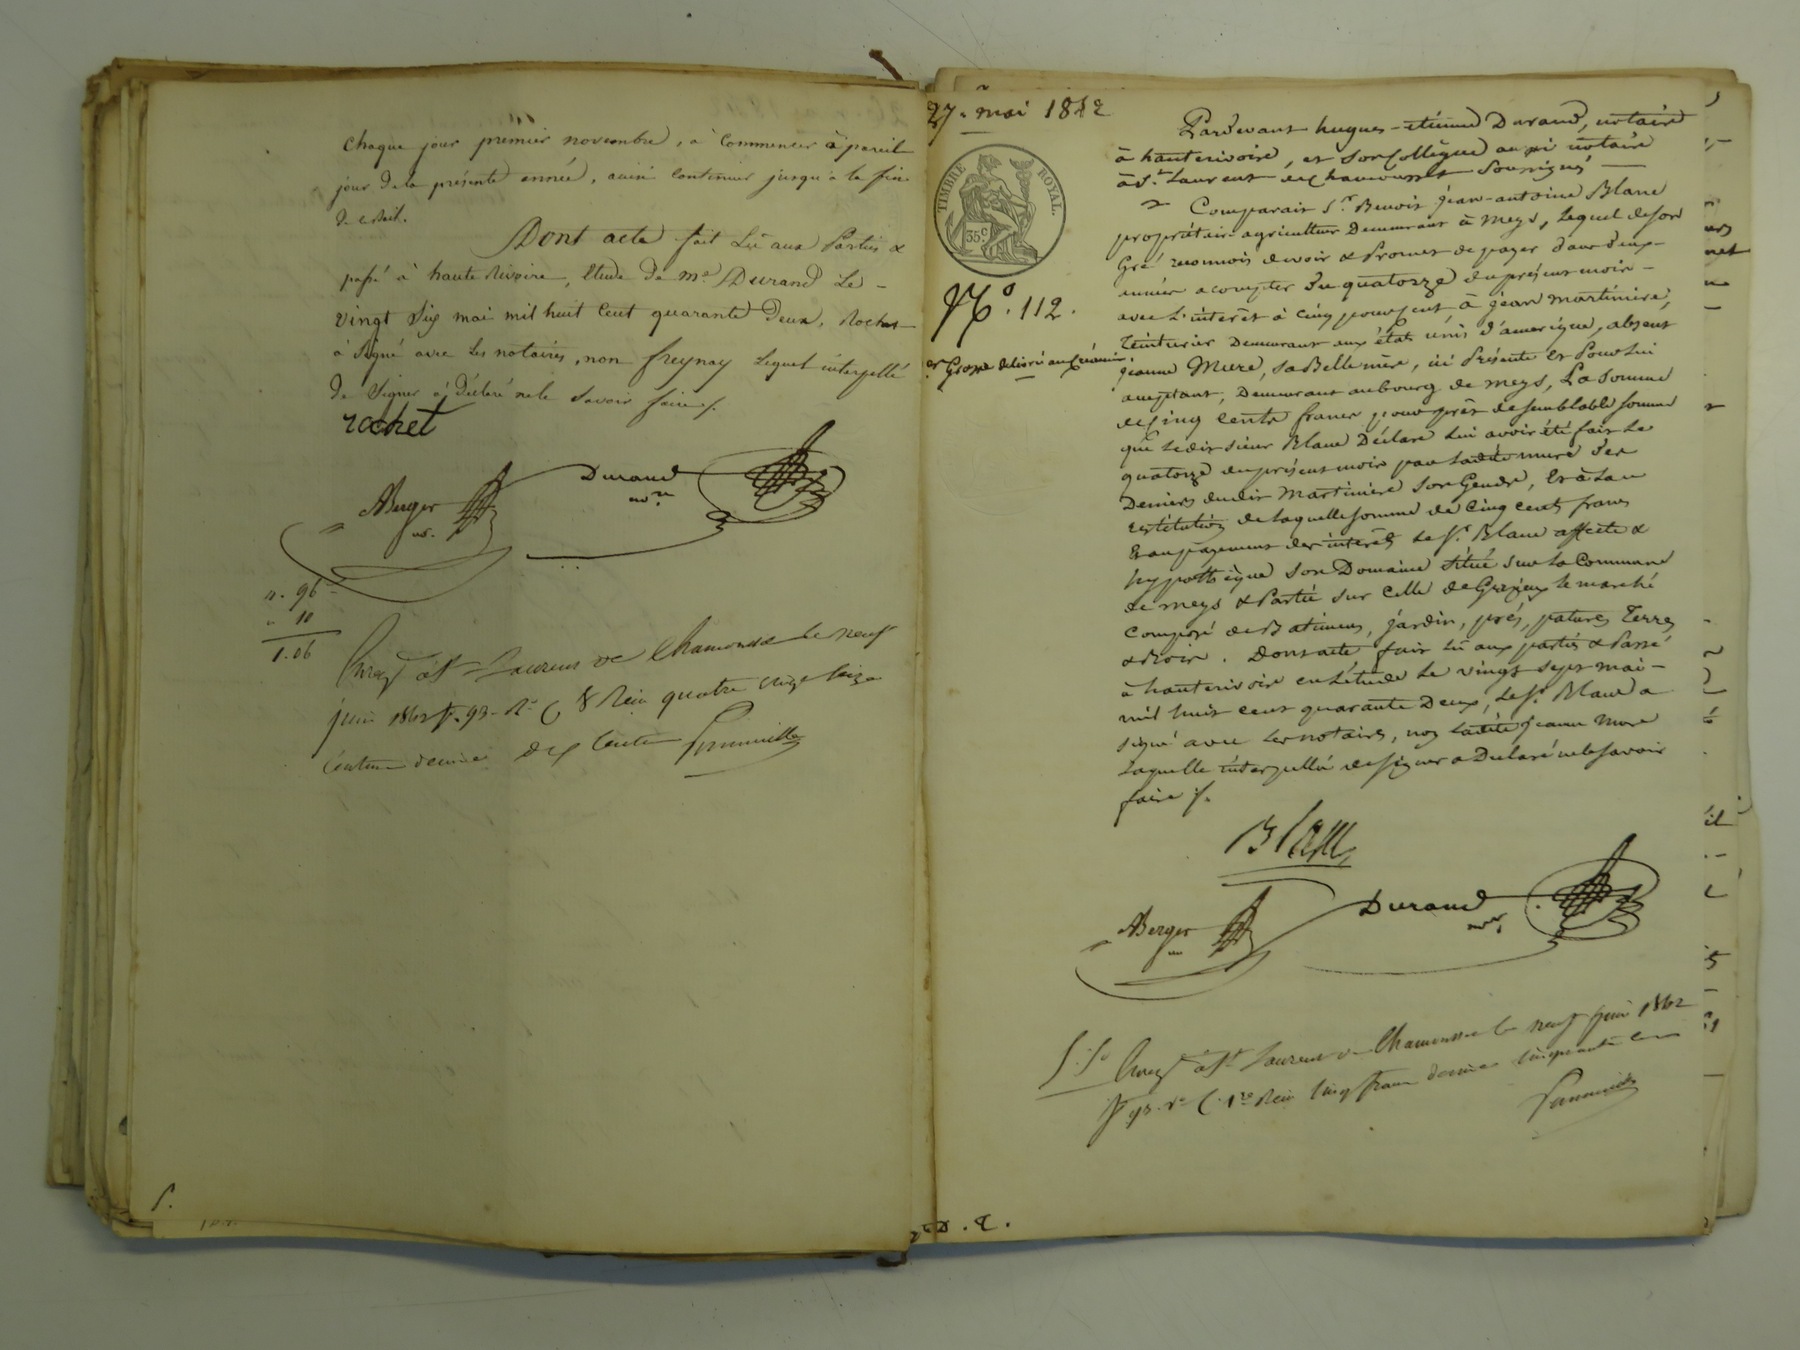 chaque jour premier novembre, à commencer à pareil
jour de la présente année, ainsi continuer jusqu'à la fin
du bail.
Dont acte fait Lû aux Parties &
passé à haute Rivoire, Etude de me Durand Le -
vingt Six mai mil huit Cent quarante deux, Rochet
à Signé avec Les notaires, non freynay Lequel interpellé
De Signer a Déclaré ne le Savoir faire /.
rochet
ABerger
nre.
Durand
nore
n. 96
" 10
1.06
Enregé à St Laurent de Chamousset le neuf
juin 1842 fo. 93. Ro C 8 Reçu quatre vingt seize
Centimes décime dix Centimes
S.
27. mai 1842
TIMBRE ROYAL.
35 c
No. 112.
Grosse délivrée au Créancier.
Pardevant hugues-étienne Durand, notaire
à hauterivoire, et Son Collègue aussi notaire
à St. Laurent de Chamousset Soussignés
Comparait Sr. Benoit Jean-antoine Blanc
propriétaire-agriculteur Demeurant à Meys, Lequel de son
Gré reconnois devoir & Promet de payer dans deux-
années a compter du quatorze du présent mois -
avec L'intérêt à cinq pour cent à jean martinière,
teinturier Demeurant aux états unis d'amérique, absent
jeanne Mure, sa Belle mère, ici Présente et Pour Lui
acceptant, Demeurant au bourg de meys, La Somme
de Cinq Cents francs pour prêt de semblable somme
que Ledit sieur Blanc Déclare Lui avoir été fait Le
quatorze du présent mois par Ladite mure des
Deniers dudit Martinière Son Gendre, Et à La
restitution de Laquelle somme de Cinq cents francs
Et au payement des intérêts Le Sr. Blanc affecte &
hypothèque Son Domaine situé Sur La Commune
de meys & Partie sur Celle de Grézieux le marché
Composé de Batimens, jardin, prés, patures, Terres
& Bois. Dont acte fait Lû aux parties & Passé
à hauterivoire en L'étude Le vingt Sept mai -
mil huit cent quarante Deux, Le Sr. Blanc a
signé avec Les notaires, non Ladite jeanne Mure
Laquelle interpellée de signer a Déclaré ne le savoir
faire /.
Blanc
ABerger
nre
Durand
nore
Enregé à St. Laurent de Chamousset le neuf juin 1842
fo 93. Vo C. 1re Reçu Cinq francs décime Cinquante cent